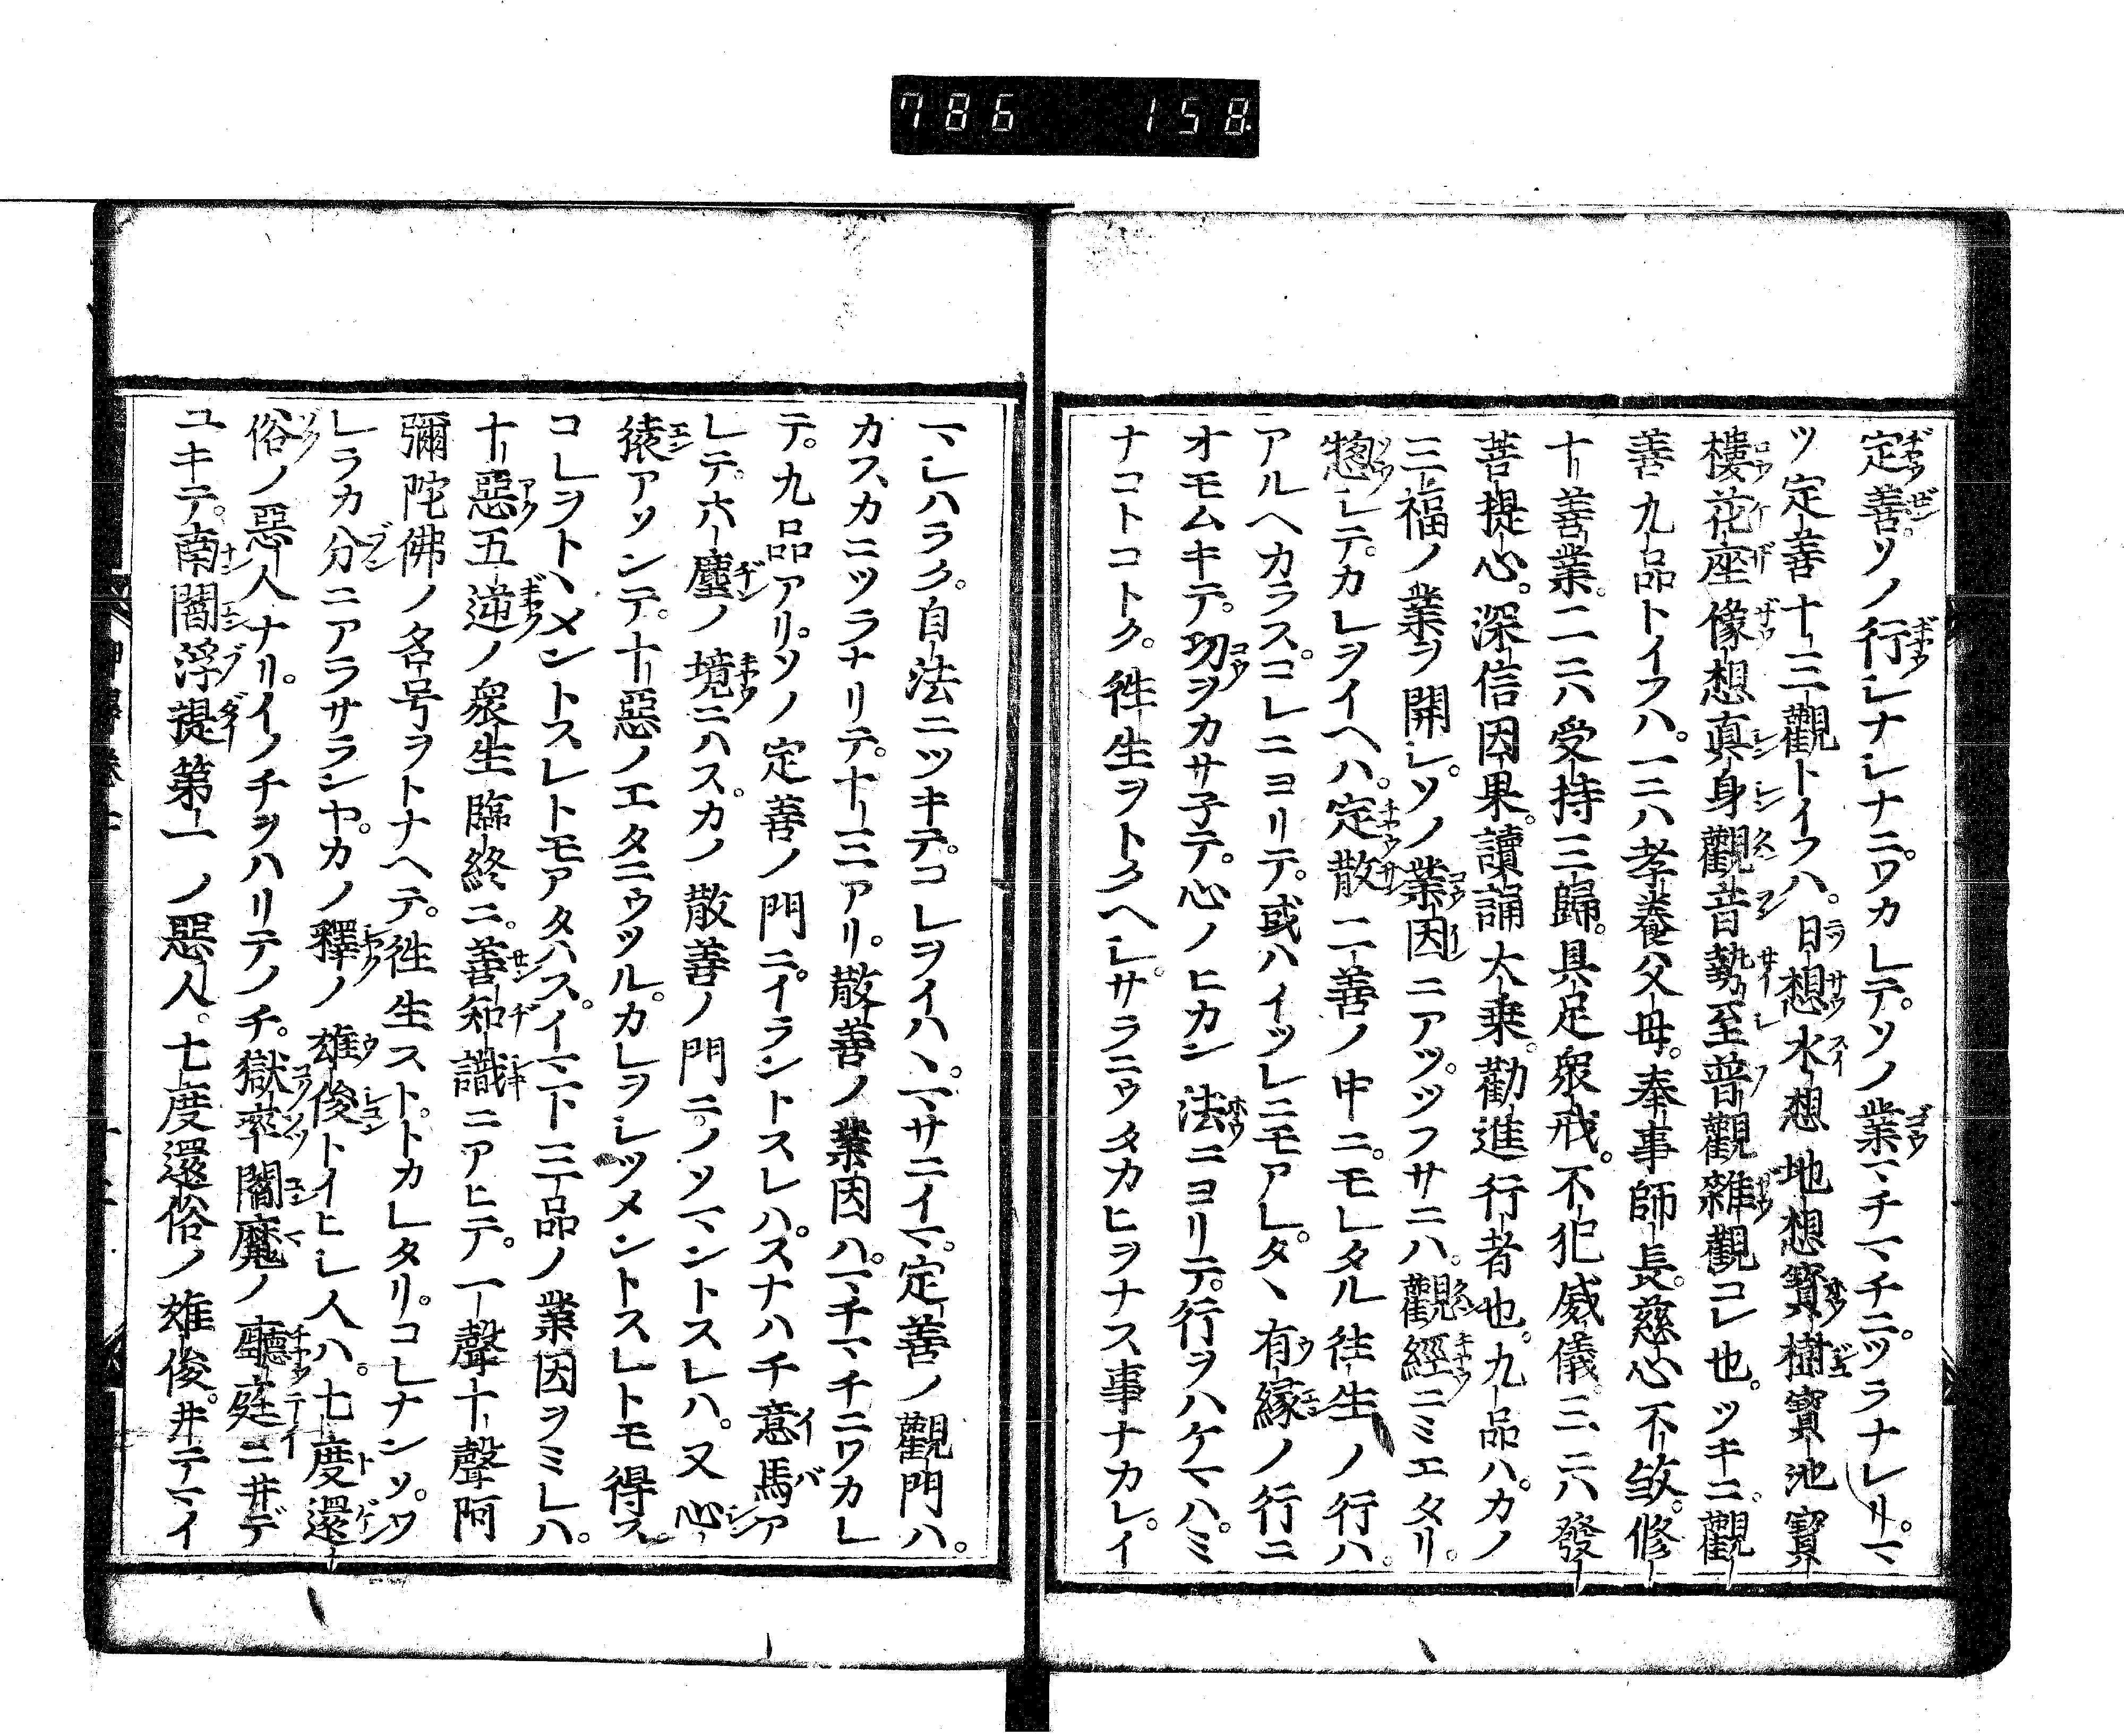 786 158
定善ソノ行シナシナニワカレテソノ業マチマチニツラナレリ。マ
ツ定善十三觀トイフハ。日想水想地想寳樹寳池寳
樓花座像想真身觀音勢至普觀雜觀コレ也。ツキニ觀
善九品トイフハ。一ニハ孝養父母。奉事師長。慈心不殺。修
十善業。二ニハ受持三歸。具足衆戒。不犯威儀。三ニハ發
菩提心。深信因果。讀誦大乗。勸進行者也。九品ハ。カノ
三福ノ業ヲ開シ。ソノ業因ニアツ。ツフサニハ。觀經ニミエタリ。
惣シテカレヲイヘハ。定散二善ノ中ニ。モレタル往生ノ行ハ。
アルヘカラス。コレニヨリテ。或ハイツレニモアレ。タヽ有縁ノ行ニ
オモムキテ。功ヲカサ子テ。心ノヒカン法ニヨリテ。行ヲハケマハ。ミ
ナコトコトク。徃生ヲトクヘシ。サラニウタカヒヲナス事ナカレ。イ
マシハラク。自法ニツキテ。コレヲイハヽ。マサニイマ。定善ノ觀門ハ。
カスカニツラナリテ。十三アリ。散善ノ業因ハ。マチマチニワカレ
テ。九品アリ。ソノ定善ノ門ニ。イラントスレハ。スナハチ意馬ア
レテ。六塵ノ境ニハス。カノ散善ノ門ニ。ノソマントスレハ。又心
猿アソンテ。十惡ノエタニウツル。カレヲシツメントスレトモ得ス。
コレヲトヽメントスレトモアタハス。イマ下三品ノ業因ヲミレハ。
十惡五逆ノ衆生臨終ニ。善知識ニアヒテ。一聲十聲阿
彌陀佛ノ名号ヲトナヘテ。徃生ストトカレタリ。コレナンソ。ワ
レラカ分ニアラサランヤ。カノ釋ノ雄俊トイヒシ人ハ。七度還
俗ノ惡人ナリ。イノチヲハリテノチ。獄率閻魔ノ廳庭ニ井デ
ユキテ。南閻浮提第一ノ惡人。七度還俗ノ雄俊。井テマイ